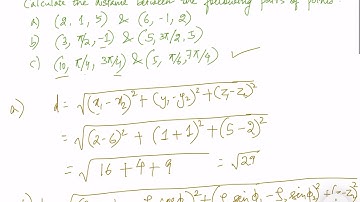 Calculate the distance between the following pairs of points.
a) (2, 1, 5) & (6, -1, 2)
b) (3, π/2, -1) & (5, 3π/2, 5)
c) (10, π/4, 3π/4) & (5, π/6, 7π/4) ✓
a) d = √(x₁-x₂)² + (y₁-y₂)² + (z₁-z₂)²
= √(2-6)² + (1+1)² + (5-2)²
= √16 + 4 + 9 = √29